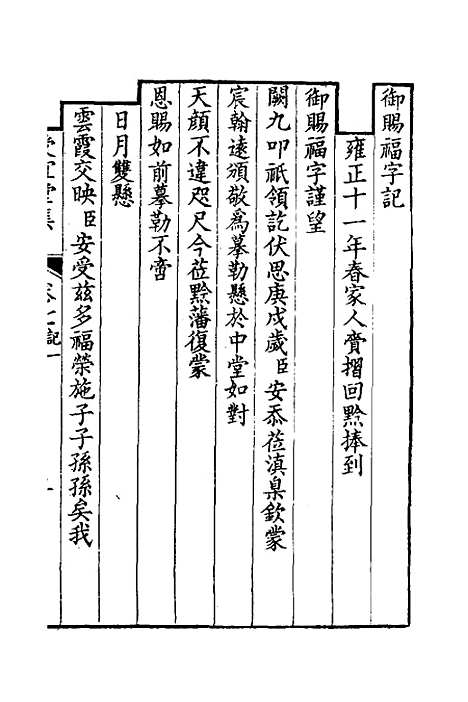 御賜福字記
雍正十一年春家人賫摺回黔捧到
御賜福字謹望
闕九叩祇領訖伏思庚戌歲臣安忝莅滇臬欽蒙
宸翰遠頒敬爲摹勒懸於中堂如對
天顔不違咫尺今莅黔藩復蒙
恩賜如前摹勒不啻
日月雙懸
雲霞交映臣安受兹多福榮施子子孫孫矣我